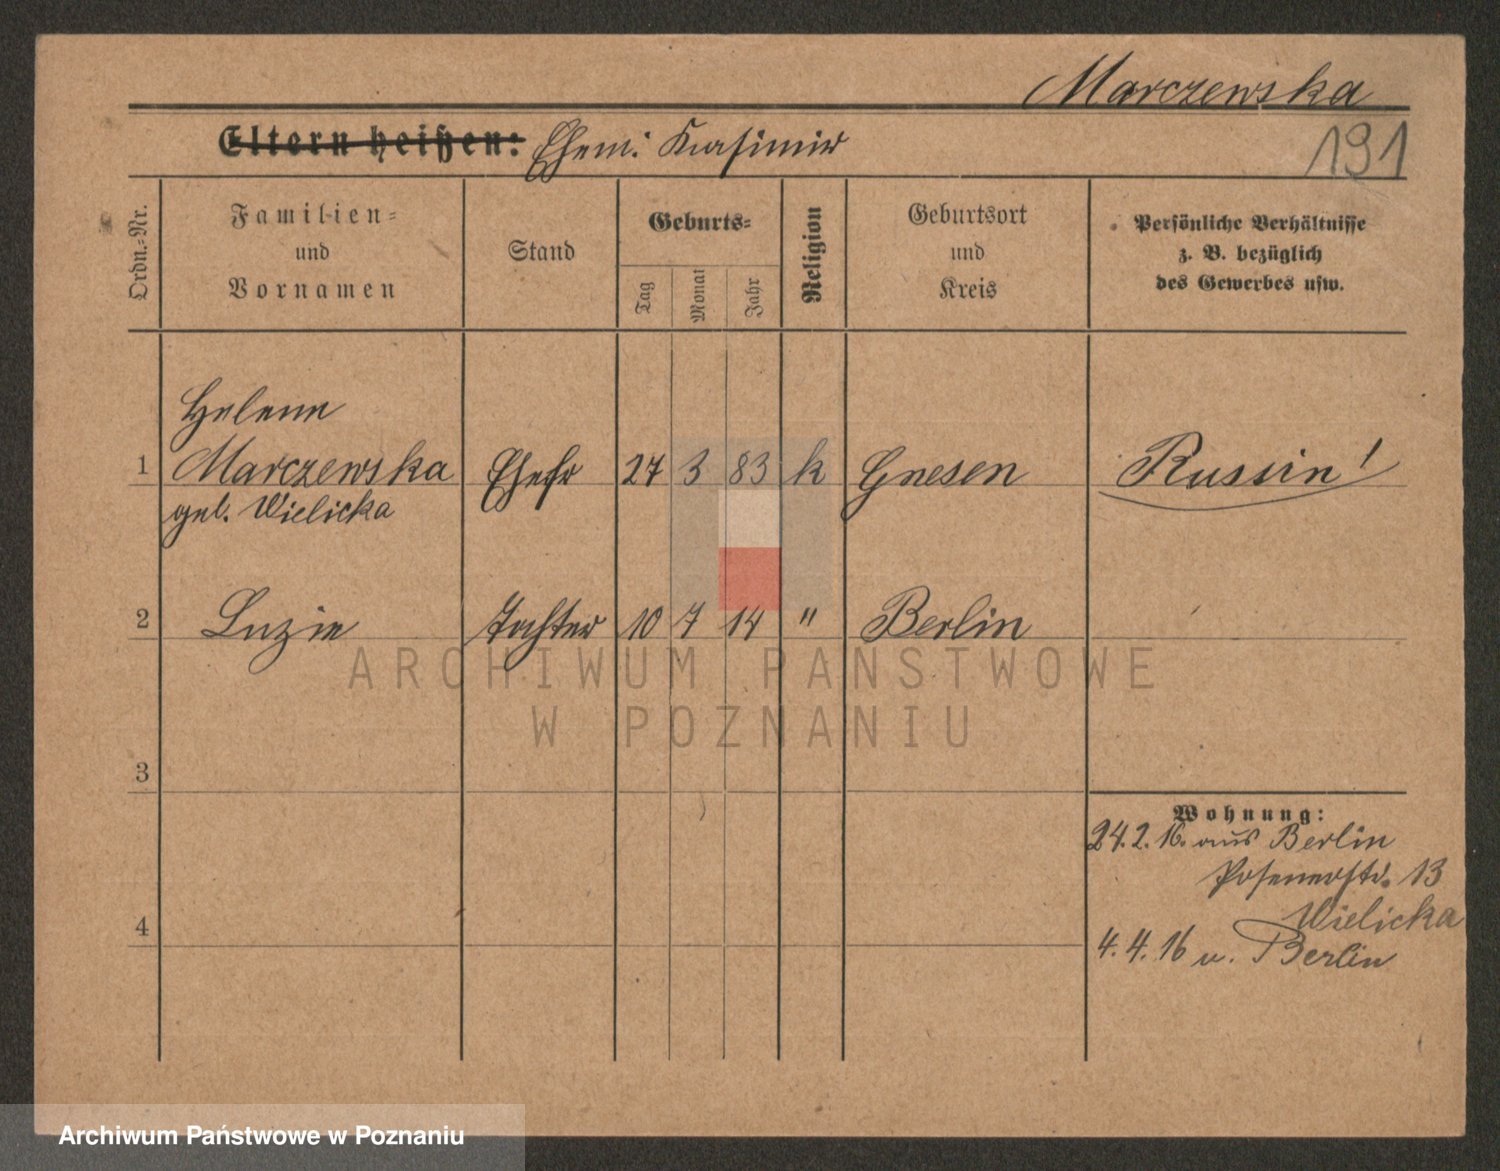 Marczewska
Eltern heißen: Ehem: Kasimir
191
Ordn.-Nr.
Familien-
und
Vornamen
Stand
Geburts-
Tag
Monat
Jahr
Religion
Geburtsort
und
Kreis
Persönliche Verhältnisse
z. B. bezüglich
des Gewerbes usw.
Helene
1 Marczewska Ehefr 27 3 83 k Gnesen Russin!
geb. Wielicka
2 Luzie Tochter 10 7 14 " Berlin
ARCHIWUM PAŃSTWOWE
W POZNANIU
3
Wohnung:
24.2.16. aus Berlin
Posenerstr. 13
Wielicka
4
4.4.16 n. Berlin
Archiwum Państwowe w Poznaniu